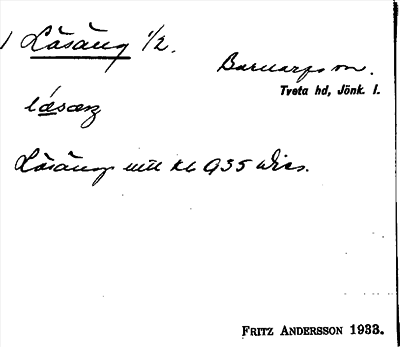 Låsäng 1/2.
Barnarps sn.
Tveta hd, Jönk. l.
låsæŋ
Låsäng utt kb 935 Wies.
FRITZ ANDERSSON 1933.